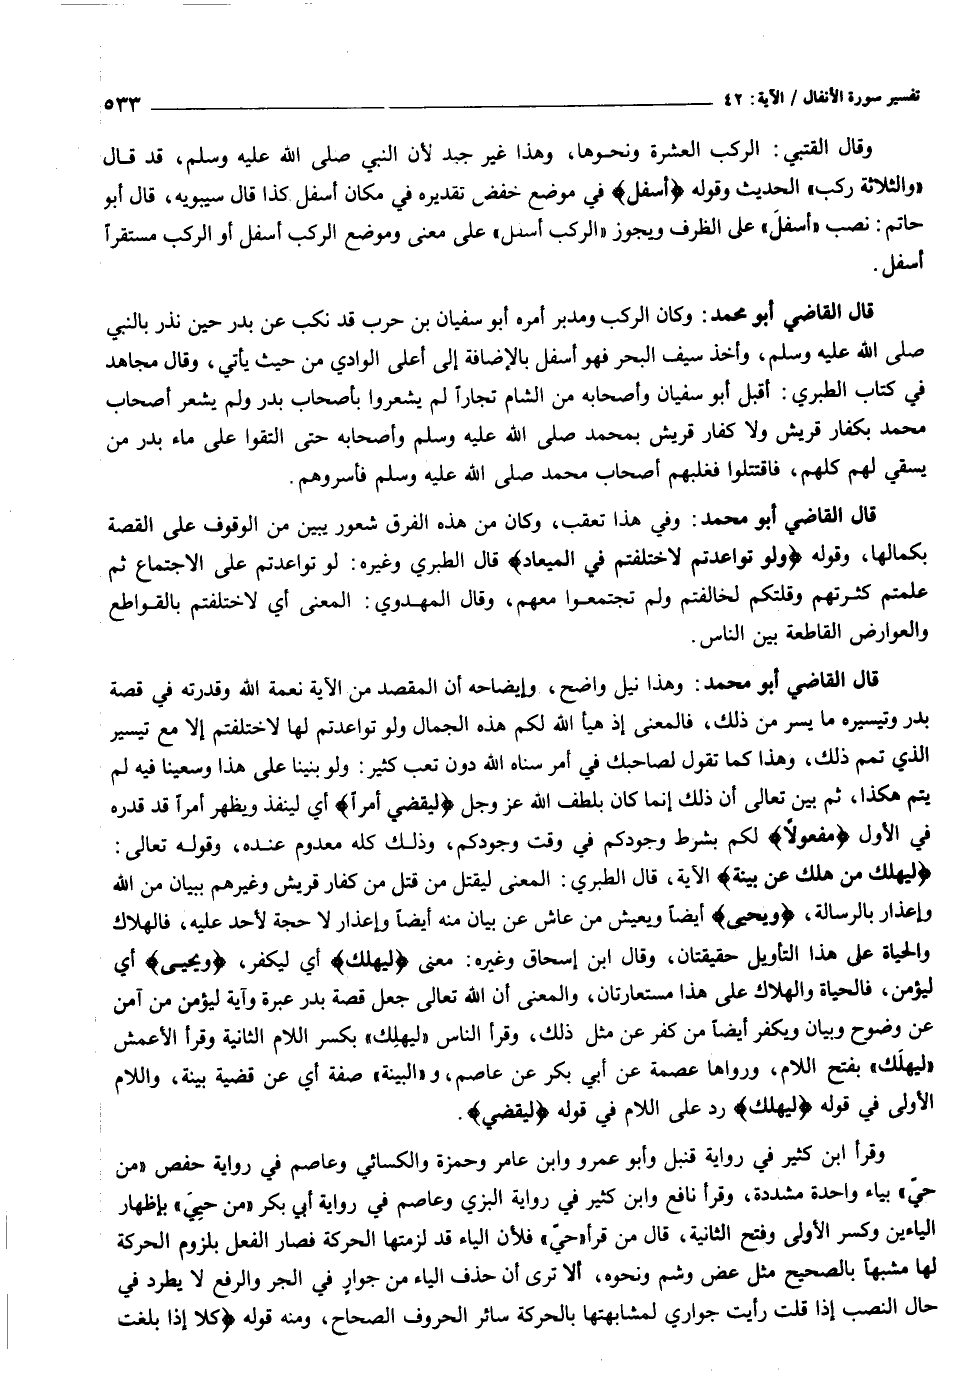 تفسير سورة الأنفال / الآية: ٤٢ ٥٣٣
وقال القتبي: الركب العشرة ونحوها، وهذا غير جيد لأن النبي صلى الله عليه وسلم، قد قال
«والثلاثة ركب» الحديث وقوله ﴿أسفل﴾ في موضع خفض تقديره في مكان أسفل كذا قال سيبويه، قال أبو
حاتم: نصب «أسفلَ» على الظرف ويجوز «الركب أسفل» على معنى وموضع الركب أسفل أو الركب مستقراً
أسفل.
قال القاضي أبو محمد: وكان الركب ومدبر أمره أبو سفيان بن حرب قد نكب عن بدر حين نذر بالنبي
صلى الله عليه وسلم، وأخذ سيف البحر فهو أسفل بالإضافة إلى أعلى الوادي من حيث يأتي، وقال مجاهد
في كتاب الطبري: أقبل أبو سفيان وأصحابه من الشام تجاراً لم يشعروا بأصحاب بدر ولم يشعر أصحاب
محمد بكفار قريش ولا كفار قريش بمحمد صلى الله عليه وسلم وأصحابه حتى التقوا على ماء بدر من
يسقي لهم كلهم، فاقتتلوا فغلبهم أصحاب محمد صلى الله عليه وسلم فأسروهم.
قال القاضي أبو محمد: وفي هذا تعقب، وكان من هذه الفرق شعور يبين من الوقوف على القصة
بكمالها، وقوله ﴿ولو تواعدتم لاختلفتم في الميعاد﴾ قال الطبري وغيره: لو تواعدتم على الاجتماع ثم
علمتم كثرتهم وقلتكم لخالفتم ولم تجتمعوا معهم، وقال المهدوي: المعنى أي لاختلفتم بالقواطع
والعوارض القاطعة بين الناس.
قال القاضي أبو محمد: وهذا نيل واضح، وإيضاحه أن المقصد من الآية نعمة الله وقدرته في قصة
بدر وتيسيره ما يسر من ذلك، فالمعنى إذ هيأ الله لكم هذه الجمال ولو تواعدتم لها لاختلفتم إلا مع تيسير
الذي تمم ذلك، وهذا كما تقول لصاحبك في أمر سناه الله دون تعب كثير: ولو بنينا على هذا وسعينا فيه لم
يتم هكذا، ثم بين تعالى أن ذلك إنما كان بلطف الله عز وجل ﴿ليقضي أمراً﴾ أي لينفذ ويظهر أمراً قد قدره
في الأول ﴿مفعولاً﴾ لكم بشرط وجودكم في وقت وجودكم، وذلك كله معدوم عنده، وقوله تعالى:
﴿ليهلك من هلك عن بينة﴾ الآية، قال الطبري: المعنى ليقتل من قتل من كفار قريش وغيرهم ببيان من الله
وإعذار بالرسالة، ﴿ويحيى﴾ أيضاً ويعيش من عاش عن بيان منه أيضاً وإعذار لا حجة لأحد عليه، فالهلاك
والحياة على هذا التأويل حقيقتان، وقال ابن إسحاق وغيره: معنى ﴿ليهلك﴾ أي ليكفر، ﴿ويحيى﴾ أي
ليؤمن، فالحياة والهلاك على هذا مستعارتان، والمعنى أن الله تعالى جعل قصة بدر عبرة وآية ليؤمن من آمن
عن وضوح وبيان ويكفر أيضاً من كفر عن مثل ذلك، وقرأ الناس «ليهلِك» بكسر اللام الثانية وقرأ الأعمش
«ليهلَك» بفتح اللام، ورواها عصمة عن أبي بكر عن عاصم، و«البينة» صفة أي عن قضية بينة، واللام
الأولى في قوله ﴿ليهلك﴾ رد على اللام في قوله ﴿ليقضي﴾.
وقرأ ابن كثير في رواية قنبل وأبو عمرو وابن عامر وحمزة والكسائي وعاصم في رواية حفص «من
حيّ» بياء واحدة مشددة، وقرأ نافع وابن كثير في رواية البزي وعاصم في رواية أبي بكر «من حيِيَ» بإظهار
الياءين وكسر الأولى وفتح الثانية، قال من قرأ«حيّ» فلأن الياء قد لزمتها الحركة فصار الفعل بلزوم الحركة
لها مشبهاً بالصحيح مثل عض وشم ونحوه، ألا ترى أن حذف الياء من جوارٍ في الجر والرفع لا يطرد في
حال النصب إذا قلت رأيت جواري لمشابهتها بالحركة سائر الحروف الصحاح، ومنه قوله ﴿كلا إذا بلغت